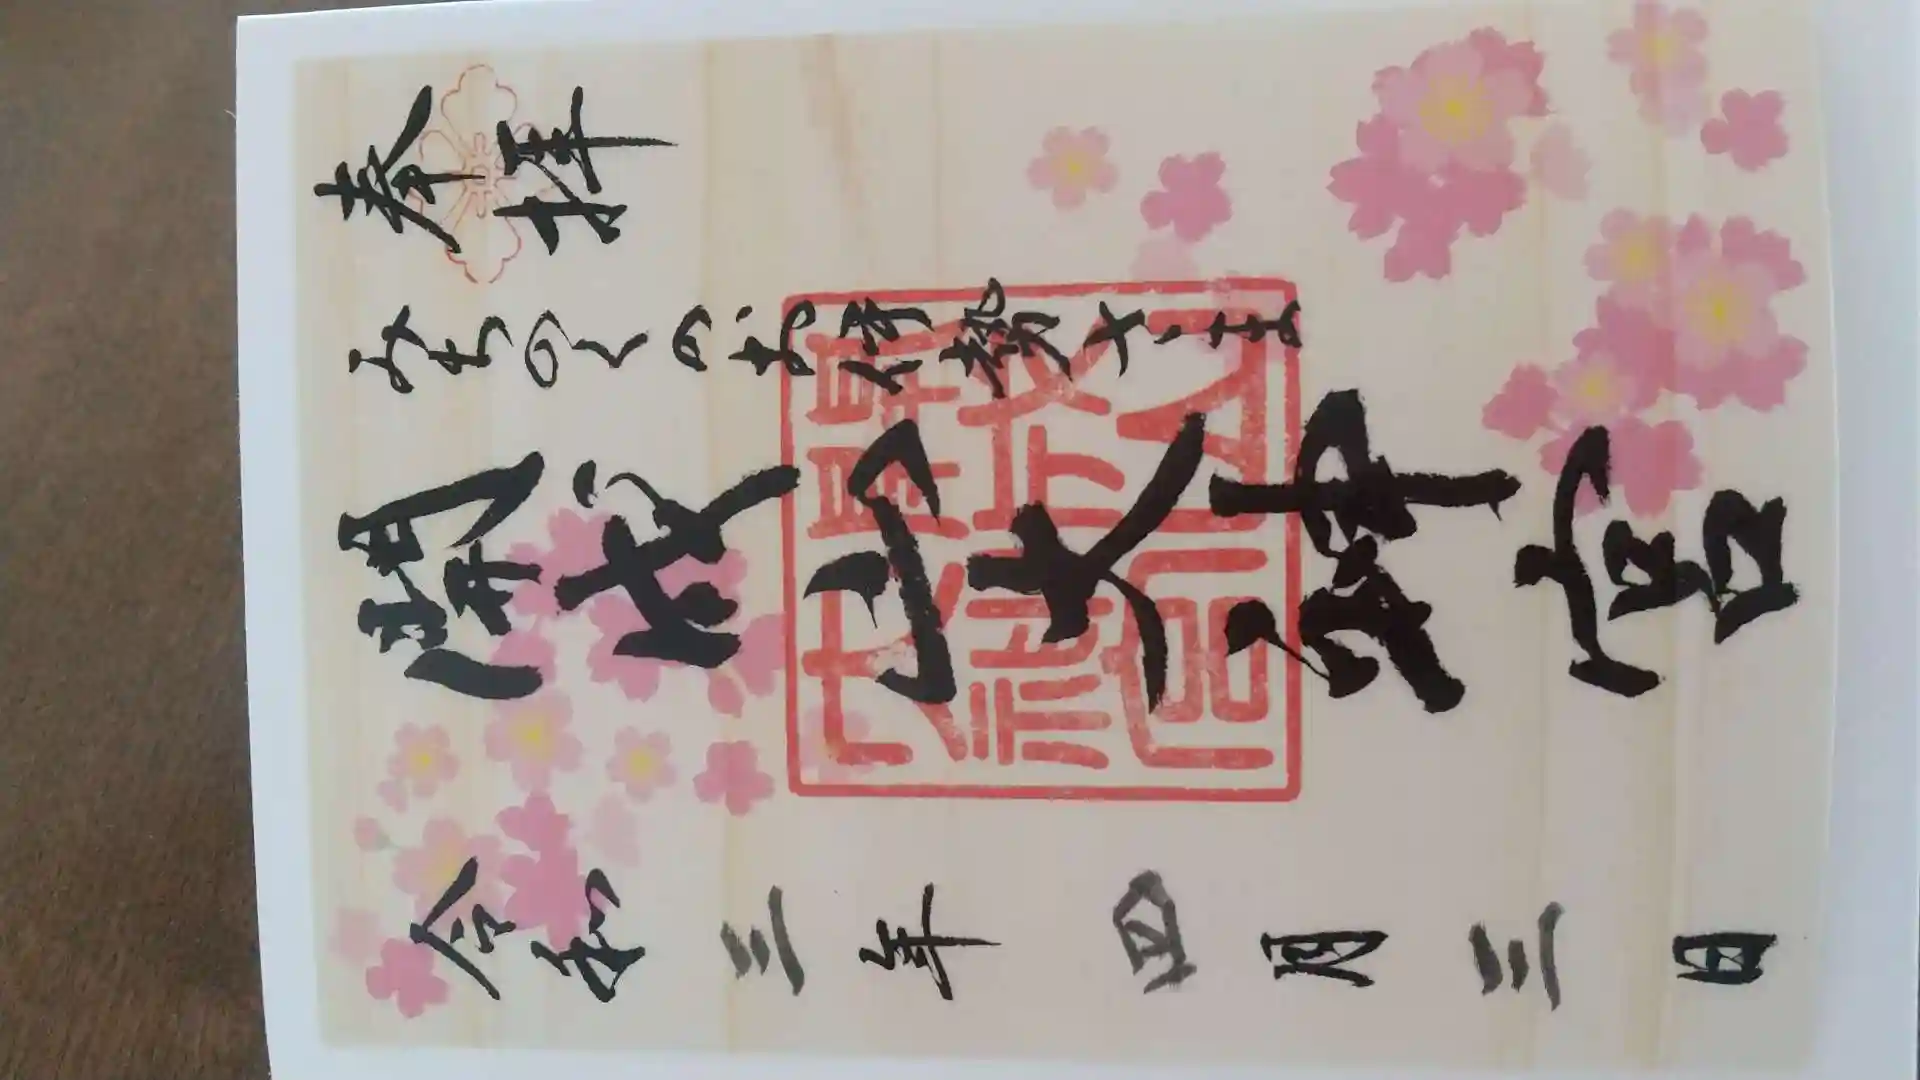 奉拝
みちのくのお伊勢さま
開成山大神宮
開成山
大神宮
令和三年四月三日